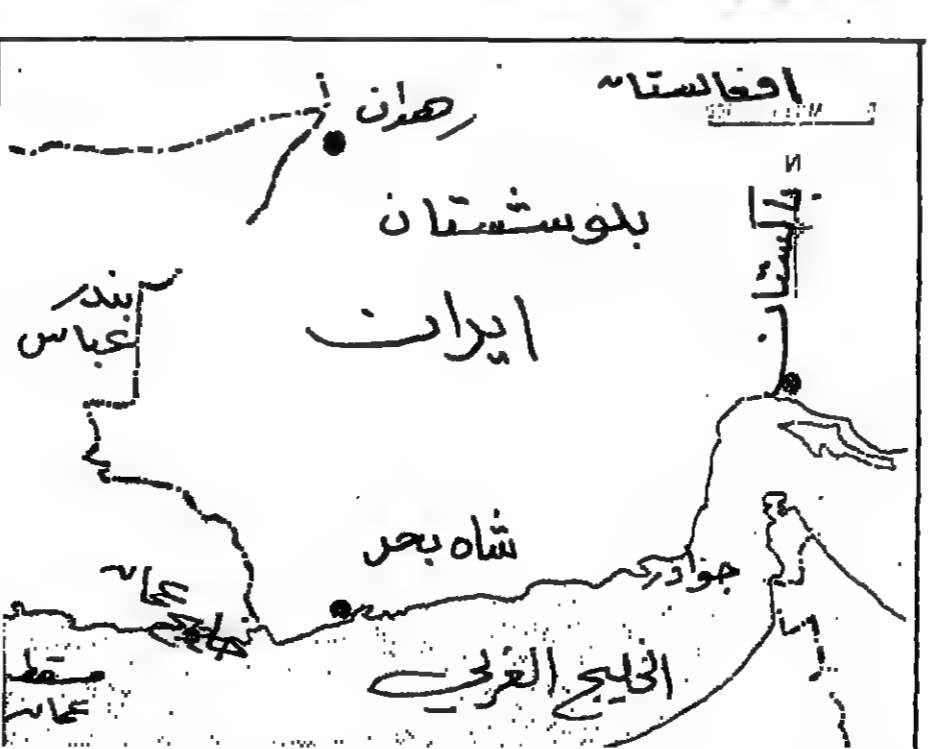 افغانستان
رهدان
N
باكستان
بلوشستان
بندر
عباس
ايران
شاه بحر
جوادر
عمان
خليج
الخليج العربي
مسقط
عمان